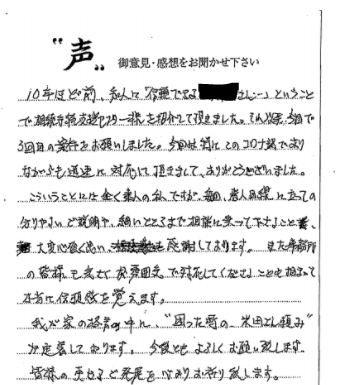 "声"
御意見・感想をお聞かせ下さい
10年ほど前、友人に「信頼できる さん…」ということ
で相続手続支援センター様を紹介して頂きました。それ以来、今回で
3回目の案件をお願いしました。今回は特にこのコロナ禍で
ながらも迅速に対応して頂きまして、ありがとうございました。
こういうことには全く素人の私ですが、毎回、素人目線に立っての
分りやすいご説明や、細いところまで相談に乗って下さること
大変心強く思い、感謝しております。また事務所
の皆様も 対応してくださることも相まって
本当に信頼感を覚えます。
我が家の格言の中に、"困った時の、米田さん頼み"
が定着しております。今後ともよろしくお願い致します。
皆様の更なるご発展を お祈り致します。